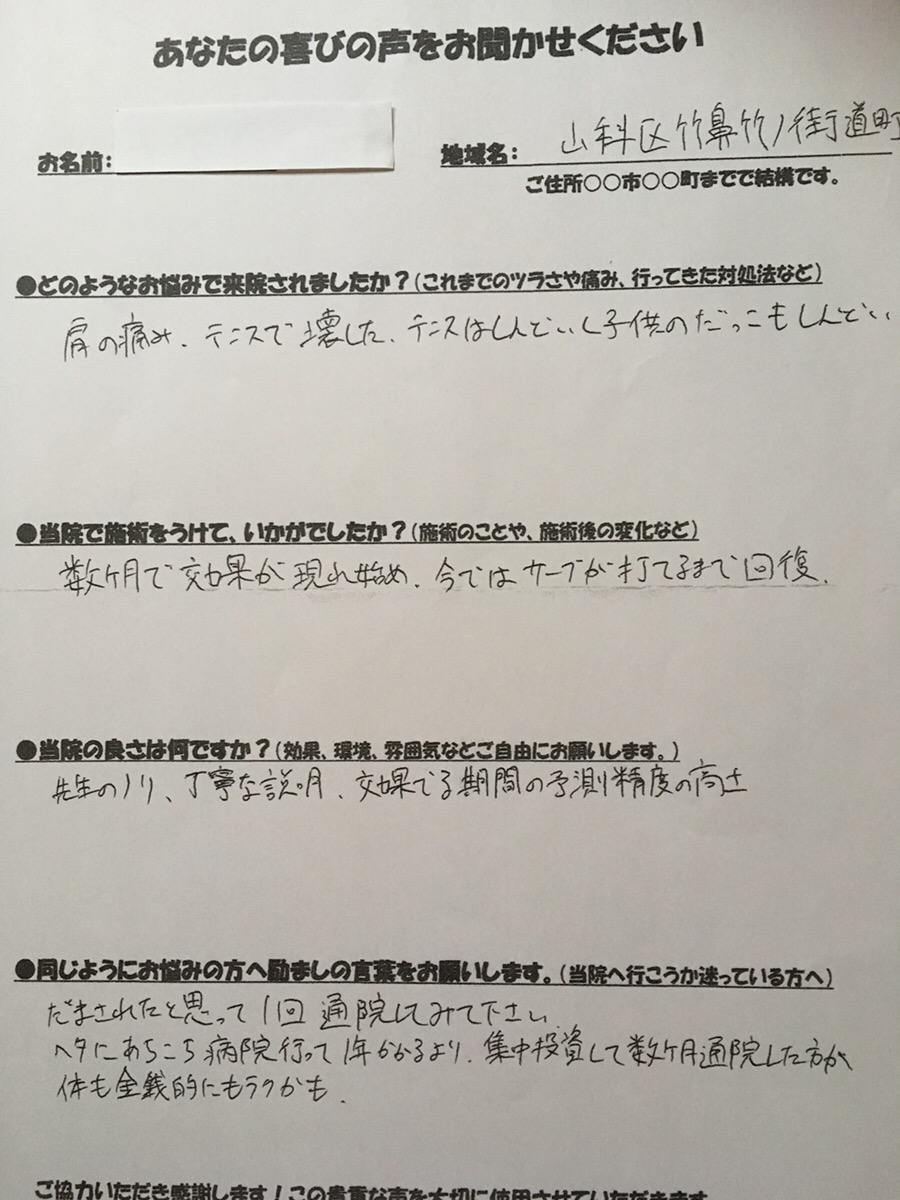 あなたの喜びの声をお聞かせください
お名前:
地域名: 山科区竹鼻竹ノ街道町
ご住所○○市○○町までで結構です。
●どのようなお悩みで来院されましたか?(これまでのツラさや痛み、行ってきた対処法など)
肩の痛み、テニスで壊した、テニスはしんどいし子供のだっこもしんどい
●当院で施術をうけて、いかがでしたか?(施術のことや、施術後の変化など)
数ヶ月で効果が現れ始め、今ではサーブが打てるまで回復、
●当院の良さは何ですか?(効果、環境、雰囲気などご自由にお願いします。)
先生のノリ、丁寧な説明、効果でる期間の予測精度の高さ
●同じようにお悩みの方へ励ましの言葉をお願いします。(当院へ行こうか迷っている方へ)
だまされたと思って1回通院してみて下さい
ヘタにあちこち病院行って1年かかるより、集中投資して数ヶ月通院した方が
体も金銭的にもラクかも、
ご協力いただき感謝します!この貴重な声を大切に使用させていただきます